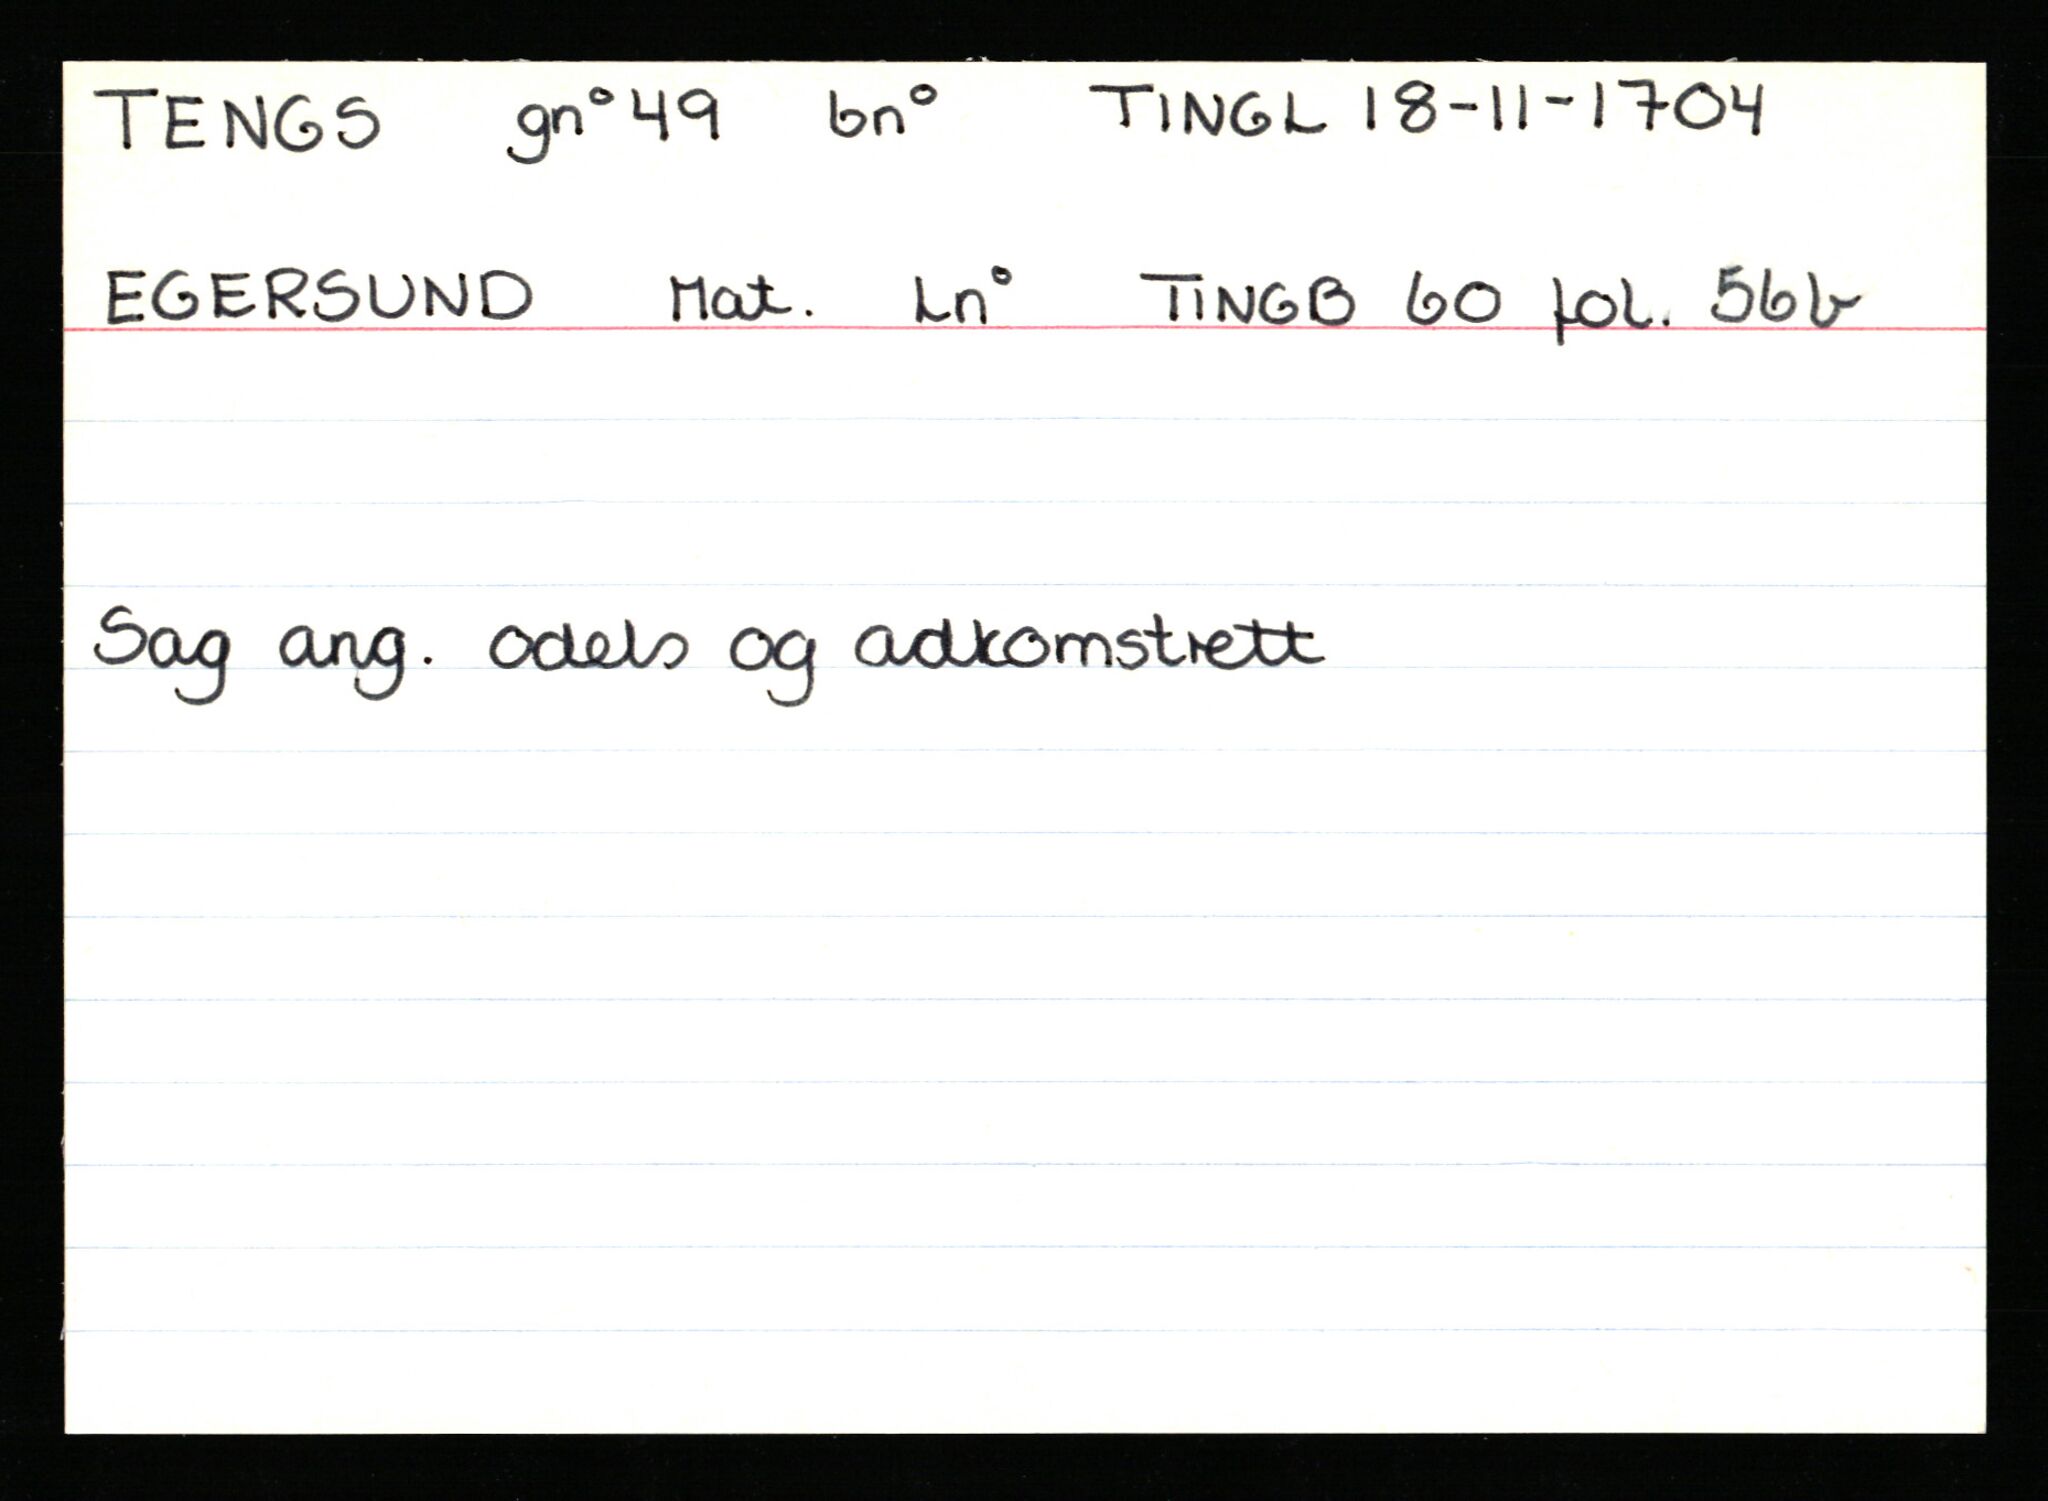 TENGS gn° 49 bn° TINGL 18-11-1704
EGERSUND Mat. Ln° TINGB 60 fol. 56b
Sag ang. odels og adkomstrett